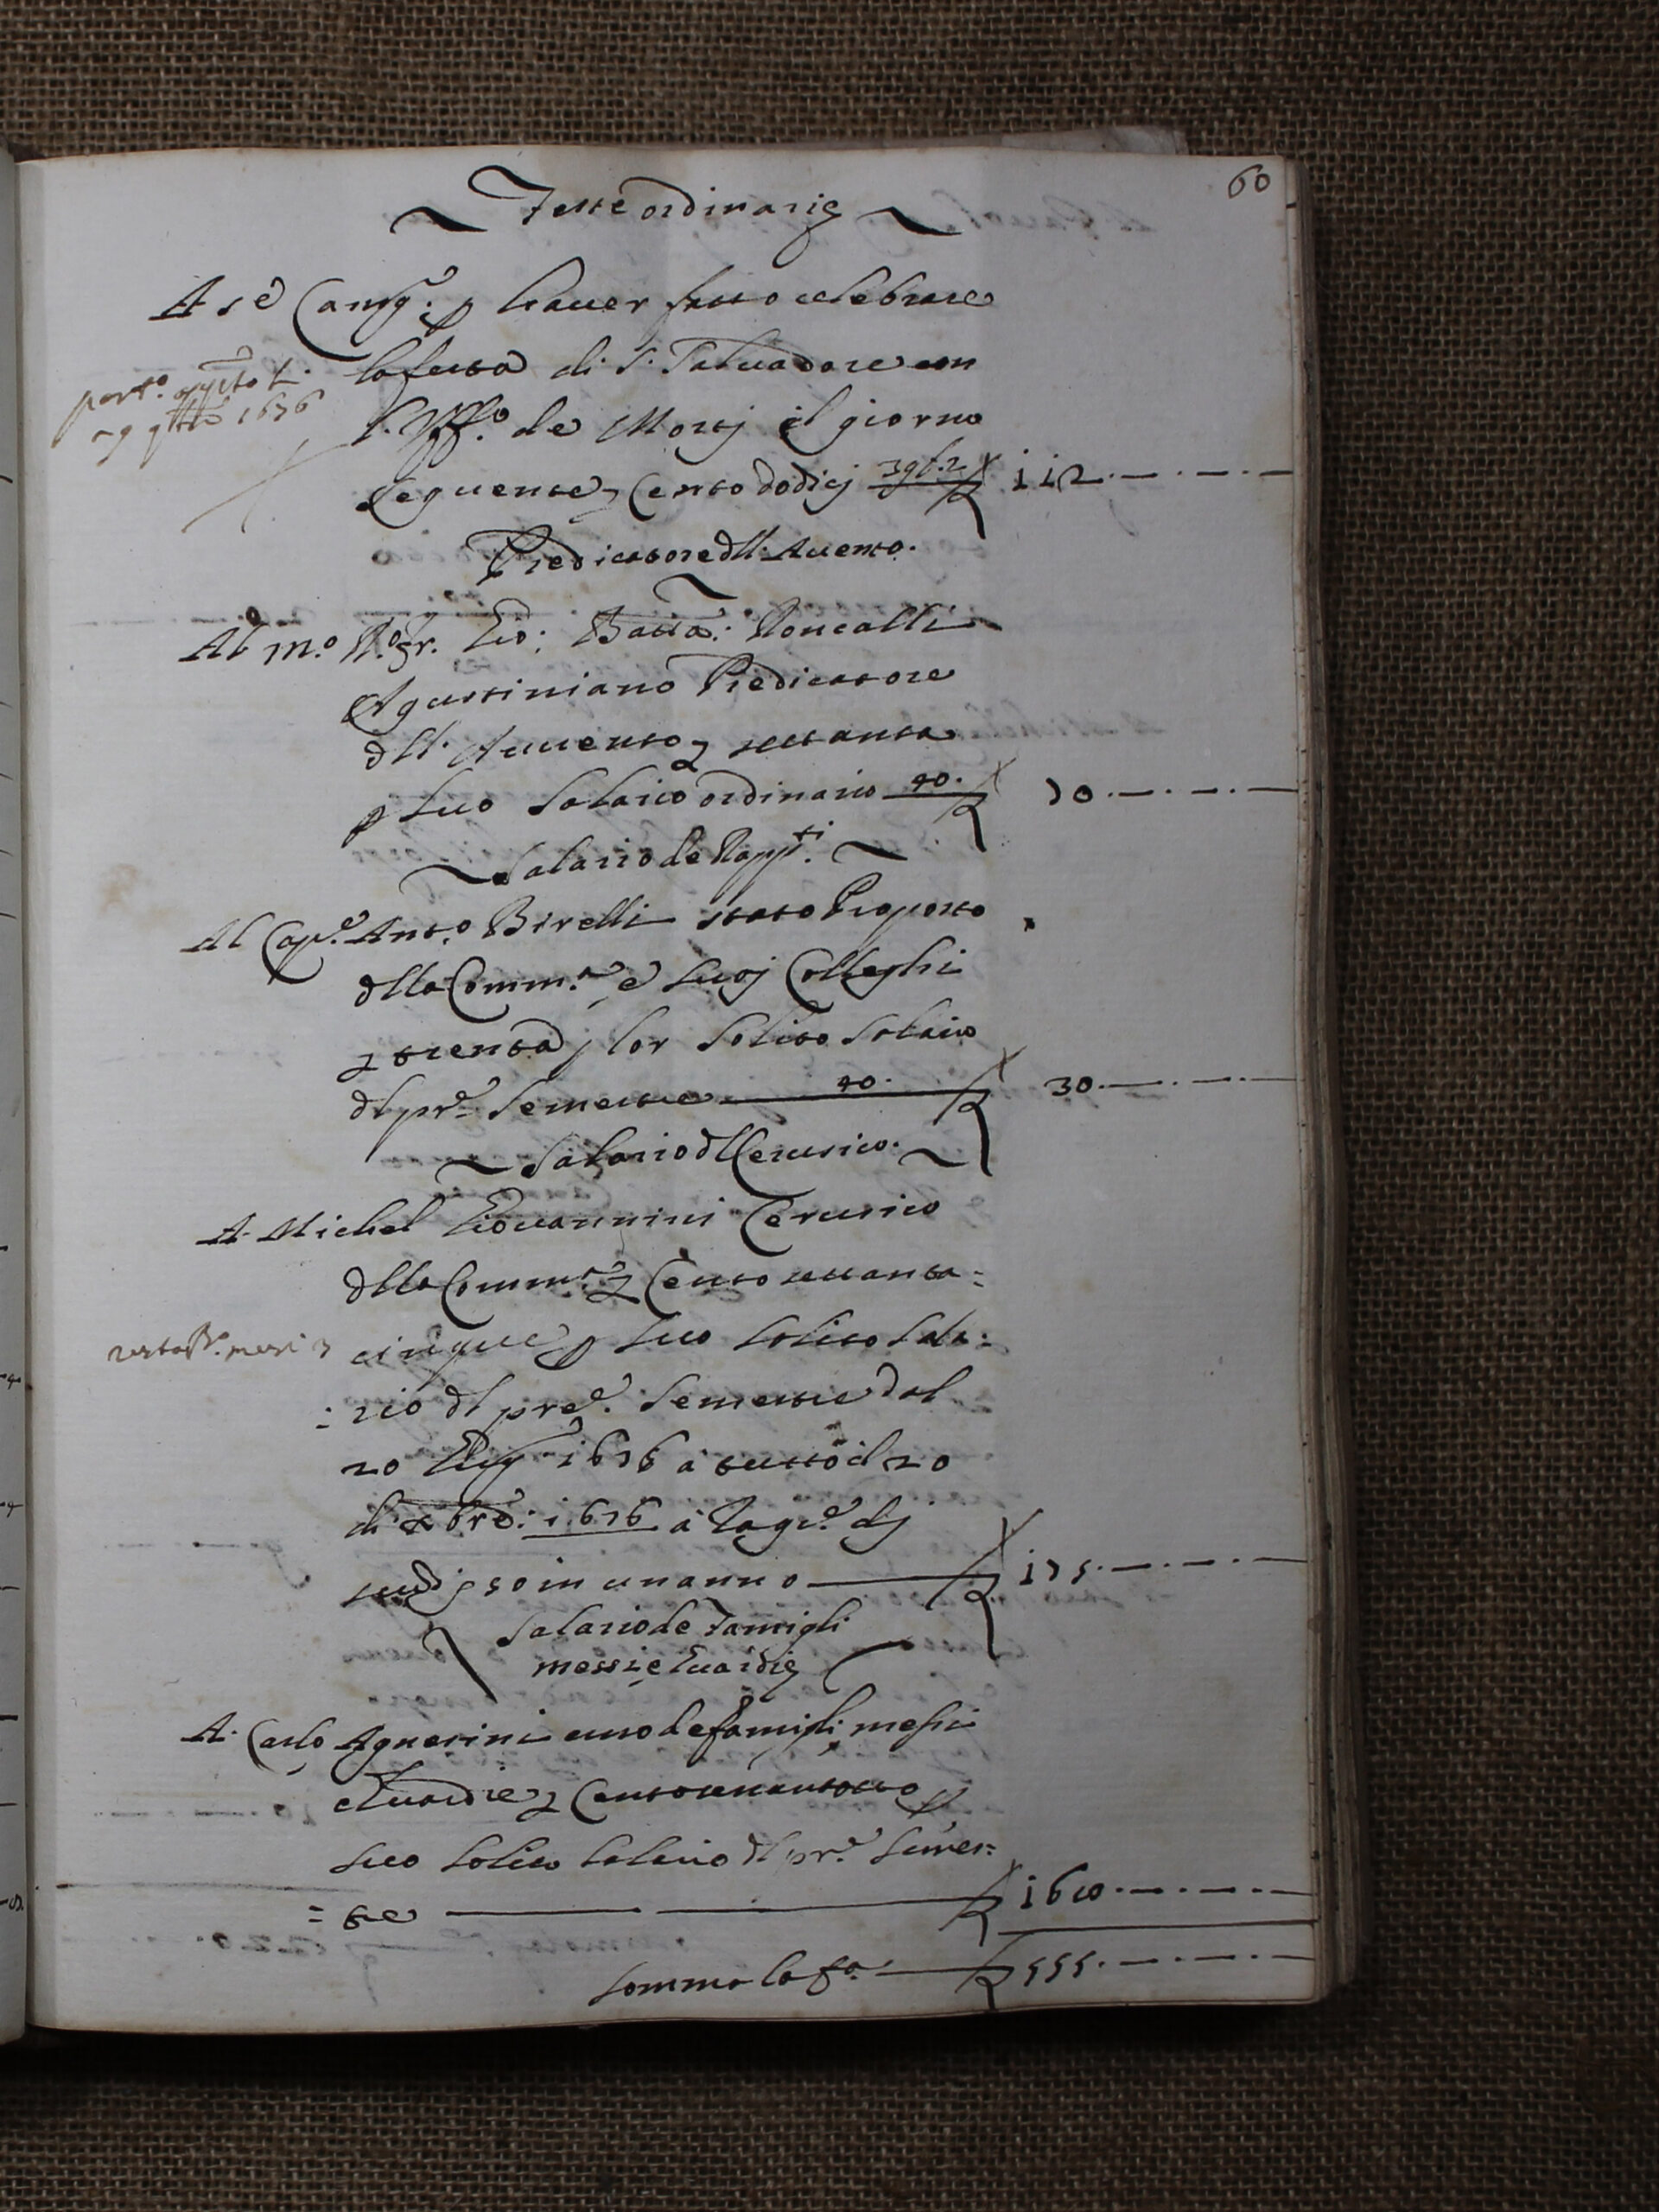 60
Feste ordinarie
A se Camg.e p hauer fatto celebrare
la festa di S. Saluadore con
l'Uff.o de Mortj il giorno
seguente, Cento dodicj 112
Predicatore dll Auento.
Al m.o R.o fr. Gio: Batta: Roncalli
Agustiniano Predicatore
dll Auuento settanta
p suo Salario ordinario 40. 70
Salario de Rapp.ti
Al Cap.o Ant.o Birelli stato Proposto
dlla Comm.a e suoj Colleghi
trenta p lor solito Salario
dl pr.o Semestre 40. 30
Salario dl Cerusico.
A Michel Giouannini Cerusico
dlla Comm.a Cento settanta=
cinque p suo solito Sala:
:rio dl pre. Semestre dal
20 Giug 1676 a tutto il 20
di Xbre: 1676 a rag.e dj
scudj 50 in un anno 175
Salario de Famigli
messi e Guardie
A Carlo Agnesini uno de famigli, messi
e Guardie Cento sessantotto p
suo solito salario dl pr.o Semes=
=tre 168
somma la fa. 555